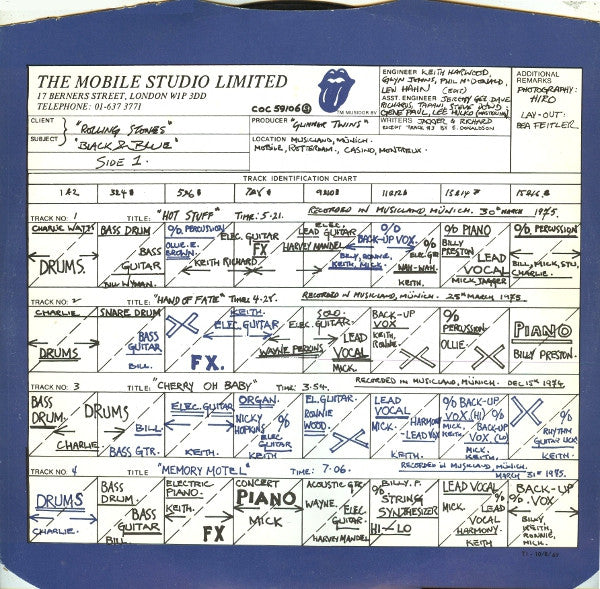 THE MOBILE STUDIO LIMITED
17 BERNERS STREET, LONDON W1P 3DD
TELEPHONE: 01-637 3771
COC 59106
TM MUSIDOR BV
ENGINEER KEITH HARWOOD,
GLYN JOHNS, PHIL McDONALD,
LEW HAHN (EDIT)
ASST. ENGINEER JEREMY GEE, DAVE
RICHARDS, TAPANI, STEVE DOWD,
GENE PAUL, LEE HULKO (MASTERING)
WRITERS JAGGER & RICHARD
EXCEPT TRACK #3 BY E. DONALDSON
ADDITIONAL
REMARKS
PHOTOGRAPHY:
HIRO
LAY-OUT:
BEA FEITLER
CLIENT "ROLLING STONES"
SUBJECT "BLACK & BLUE"
SIDE 1.
PRODUCER "GLIMMER TWINS"
LOCATION MUSICLAND, MÜNICH.
MOBILE, ROTTERDAM, CASINO, MONTREUX.
TRACK IDENTIFICATION CHART
1 & 2 3 & 4 5 & 6 7 & 8 9 & 10 11 & 12 13 & 14 15 & 16
TRACK NO: 1 TITLE: "HOT STUFF" TIME: 5-21. RECORDED IN MUSICLAND, MÜNICH. 30th MARCH 1975.
CHARLIE WATTS
DRUMS.
BASS DRUM
BASS
GUITAR
BILL WYMAN.
% PERCUSSION
OLLIE E.
BROWN.
KEITH RICHARD
ELEC. GUITAR
FX
ELEC.
LEAD GUITAR
HARVEY MANDEL
BILLY, RONNIE,
KEITH, MICK.
O/D
BACK-UP VOX.
%
ELEC GTR
WAH-WAH.
KEITH.
% PIANO
BILLY
PRESTON
LEAD
VOCAL
MICK JAGGER
% PERCUSSION
BILL, MICK, STU,
CHARLIE.
TRACK NO: 2 TITLE: "HAND OF FATE" TIME: 4-28. RECORDED IN MUSICLAND, MÜNICH. 25th MARCH 1975.
CHARLIE
DRUMS
SNARE DRUM
BASS
GUITAR
BILL.
FX.
KEITH.
ELEC. GUITAR
WAYNE PERKINS
SOLO.
ELEC. GUITAR
LEAD
VOCAL
MICK.
BACK-UP
VOX
KEITH,
RONNIE
%
PERCUSSION
OLLIE.
PIANO
BILLY PRESTON.
TRACK NO: 3 TITLE: "CHERRY OH BABY" TIME: 3-54. RECORDED IN MUSICLAND, MÜNICH. DEC 15th 1974.
BASS
DRUM.
DRUMS
CHARLIE
BILL
BASS GTR.
ELEC. GUITAR
KEITH.
ORGAN.
NICKY
HOPKINS
%
ELEC
GUITAR
KEITH
EL. GUITAR
RONNIE
WOOD.
LEAD
VOCAL
MICK.
HARMONY
-LEAD VOX
KEITH
% BACK-UP
VOX (HI)
MICK,
KEITH.
% BACK-UP
VOX. (LO)
MICK.
KEITH.
%
RHYTHM
GUITAR
KEITH
TRACK NO: 4 TITLE: "MEMORY MOTEL" TIME: 7-06. RECORDED IN MUSICLAND, MÜNICH.
MARCH 31st 1975.
DRUMS
CHARLIE.
BASS
DRUM.
BASS
GUITAR
BILL
ELECTRIC
PIANO.
KEITH.
FX
CONCERT
PIANO
MICK
ACOUSTIC GTR
WAYNE.
ELEC.
GUITAR.
HARVEY MANDEL
% BILLY. P.
STRING
SYNTHESIZER
HI-LO
LEAD VOCAL
MICK.
LEAD
VOCAL
HARMONY.
KEITH
BACK-UP
% VOX.
BILLY,
KEITH,
RONNIE,
MICK.